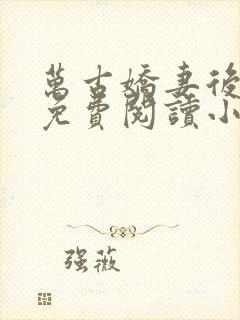 萬古嬌妻後
免費閱讀小
强薇